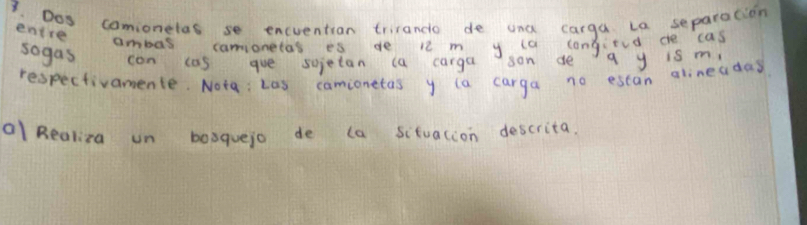 3. Dos camionetas se encuentran tirando de una carga. La separación
entre ambas camionetas es de 12 m y la longitud de las
sogas con las que sujetan la carga son de 9 y 15 m,
respectivamente. Nota: Las camionetas y la carga no estan alineadas.
a) Realiza un bosquejo de la situación descrita.